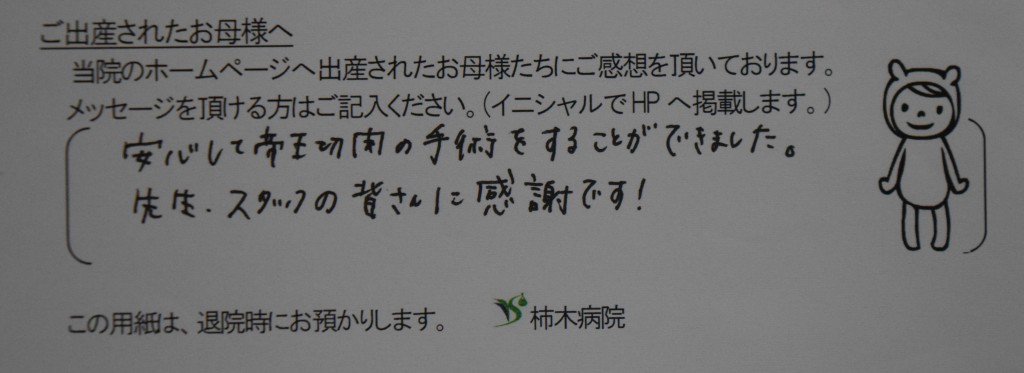 ご出産されたお母様へ
当院のホームページへ出産されたお母様たちにご感想を頂いております。
メッセージを頂ける方はご記入ください。(イニシャルでHPへ掲載します。)
安心して帝王切開の手術をすることができました。
先生、スタッフの皆さんに感謝です!
この用紙は、退院時にお預かりします。 柿木病院